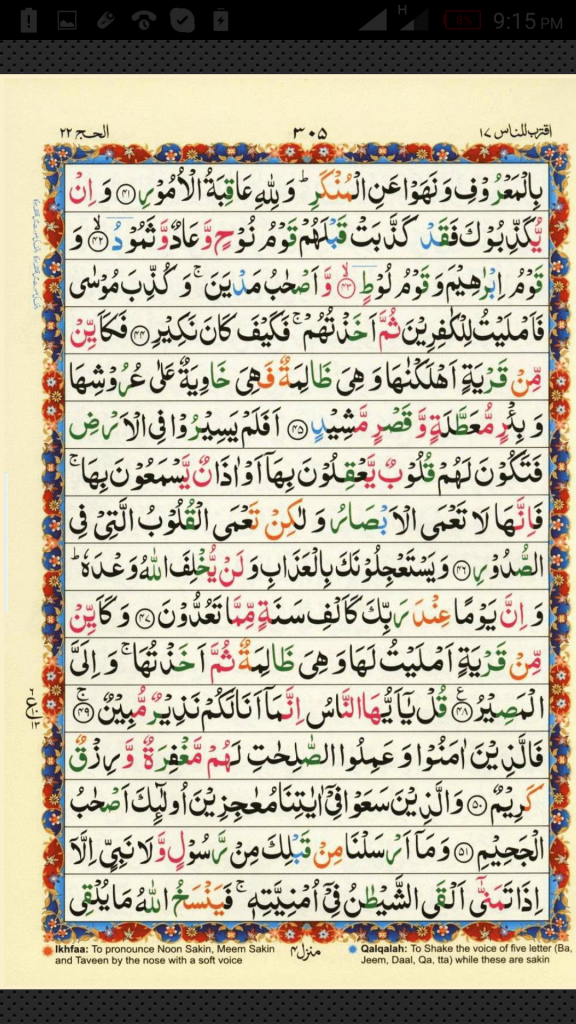 H 8% 9:15 PM
الحج ٢٢ ٣٠٥ اقترب للناس ١٧
بِالْمَعْرُوْفِ وَنَهَوْا عَنِ الْمُنْكَرِ ؕ وَلِلّٰهِ عَاقِبَةُ الْاُمُوْرِ ﴿۴۱﴾ وَ اِنْ
يُّكَذِّبُوْكَ فَقَدْ كَذَّبَتْ قَبْلَهُمْ قَوْمُ نُوْحٍ وَّعَادٌ وَّثَمُوْدُ ۙ﴿۴۲﴾ وَ
قَوْمُ اِبْرٰهِيْمَ وَقَوْمُ لُوْطٍ ۙ﴿۴۳﴾ وَّاَصْحٰبُ مَدْيَنَ ۚ وَكُذِّبَ مُوْسٰى
فَاَمْلَيْتُ لِلْكٰفِرِيْنَ ثُمَّ اَخَذْتُهُمْ ۚ فَكَيْفَ كَانَ نَكِيْرِ ﴿۴۴﴾ فَكَاَيِّنْ
مِّنْ قَرْيَةٍ اَهْلَكْنٰهَا وَهِىَ ظَالِمَةٌ فَهِىَ خَاوِيَةٌ عَلٰى عُرُوْشِهَا
وَبِئْرٍ مُّعَطَّلَةٍ وَّقَصْرٍ مَّشِيْدٍ ﴿۴۵﴾ اَفَلَمْ يَسِيْرُوْا فِى الْاَرْضِ
فَتَكُوْنَ لَهُمْ قُلُوْبٌ يَّعْقِلُوْنَ بِهَاۤ اَوْ اٰذَانٌ يَّسْمَعُوْنَ بِهَا ۚ
فَاِنَّهَا لَا تَعْمَى الْاَبْصَارُ وَلٰكِنْ تَعْمَى الْقُلُوْبُ الَّتِىْ فِى
الصُّدُوْرِ ﴿۴۶﴾ وَيَسْتَعْجِلُوْنَكَ بِالْعَذَابِ وَلَنْ يُّخْلِفَ اللّٰهُ وَعْدَهٗ ؕ
وَاِنَّ يَوْمًا عِنْدَ رَبِّكَ كَاَلْفِ سَنَةٍ مِّمَّا تَعُدُّوْنَ ﴿۴۷﴾ وَكَاَيِّنْ
مِّنْ قَرْيَةٍ اَمْلَيْتُ لَهَا وَهِىَ ظَالِمَةٌ ثُمَّ اَخَذْتُهَا ۚ وَاِلَىَّ
الْمَصِيْرُ ﴿۴۸﴾ قُلْ يٰۤاَيُّهَا النَّاسُ اِنَّمَاۤ اَنَا لَكُمْ نَذِيْرٌ مُّبِيْنٌ ۚ﴿۴۹﴾
فَالَّذِيْنَ اٰمَنُوْا وَعَمِلُوا الصّٰلِحٰتِ لَهُمْ مَّغْفِرَةٌ وَّرِزْقٌ
كَرِيْمٌ ﴿۵۰﴾ وَالَّذِيْنَ سَعَوْا فِىْۤ اٰيٰتِنَا مُعٰجِزِيْنَ اُولٰٓئِكَ اَصْحٰبُ
الْجَحِيْمِ ﴿۵۱﴾ وَمَاۤ اَرْسَلْنَا مِنْ قَبْلِكَ مِنْ رَّسُوْلٍ وَّلَا نَبِىٍّ اِلَّاۤ
اِذَا تَمَنّٰٓى اَلْقَى الشَّيْطٰنُ فِىْۤ اُمْنِيَّتِهٖ ۚ فَيَنْسَخُ اللّٰهُ مَا يُلْقِى
Ikhfaa: To pronounce Noon Sakin, Meem Sakin
and Taveen by the nose with a soft voice
منزل ۴
Qalqalah: To Shake the voice of five letter (Ba,
Jeem, Daal, Qa, tta) while these are sakin